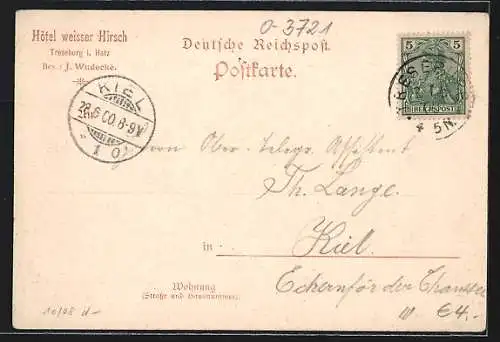 o-3721
Hôtel weisser Hirsch
Treseburg i. Harz
Bes.: J. Wudecke.
Deutsche Reichspost
Postkarte.
5 5
REICHSPOST
TRESEB
5 N.
KIEL
28.6.00.8-9V
1 o
Herrn Ober-Telegr. Assistent
Th. Lange.
in Kiel.
Wohnung
(Straße und Hausnummer)
Eckernförder Chaussee
10/08 d-
W. €4.-